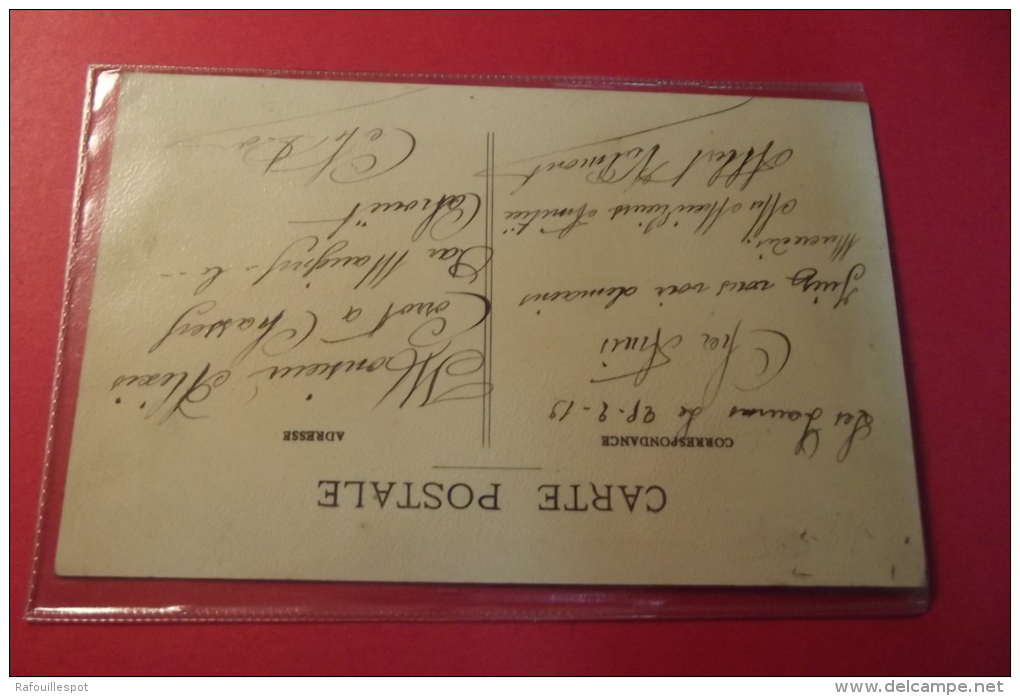 CARTE POSTALE
CORRESPONDANCE
Les le 25-2-19
Cher Amis
Juis vous voir demains
Mercredi
Mes Meilleurs Amitié
Albert
ADRESSE
Monsieur Alexis
Corot a Chassey
Par Maigny-le-
Cahouët
Rafouillespot
©delcampe.net